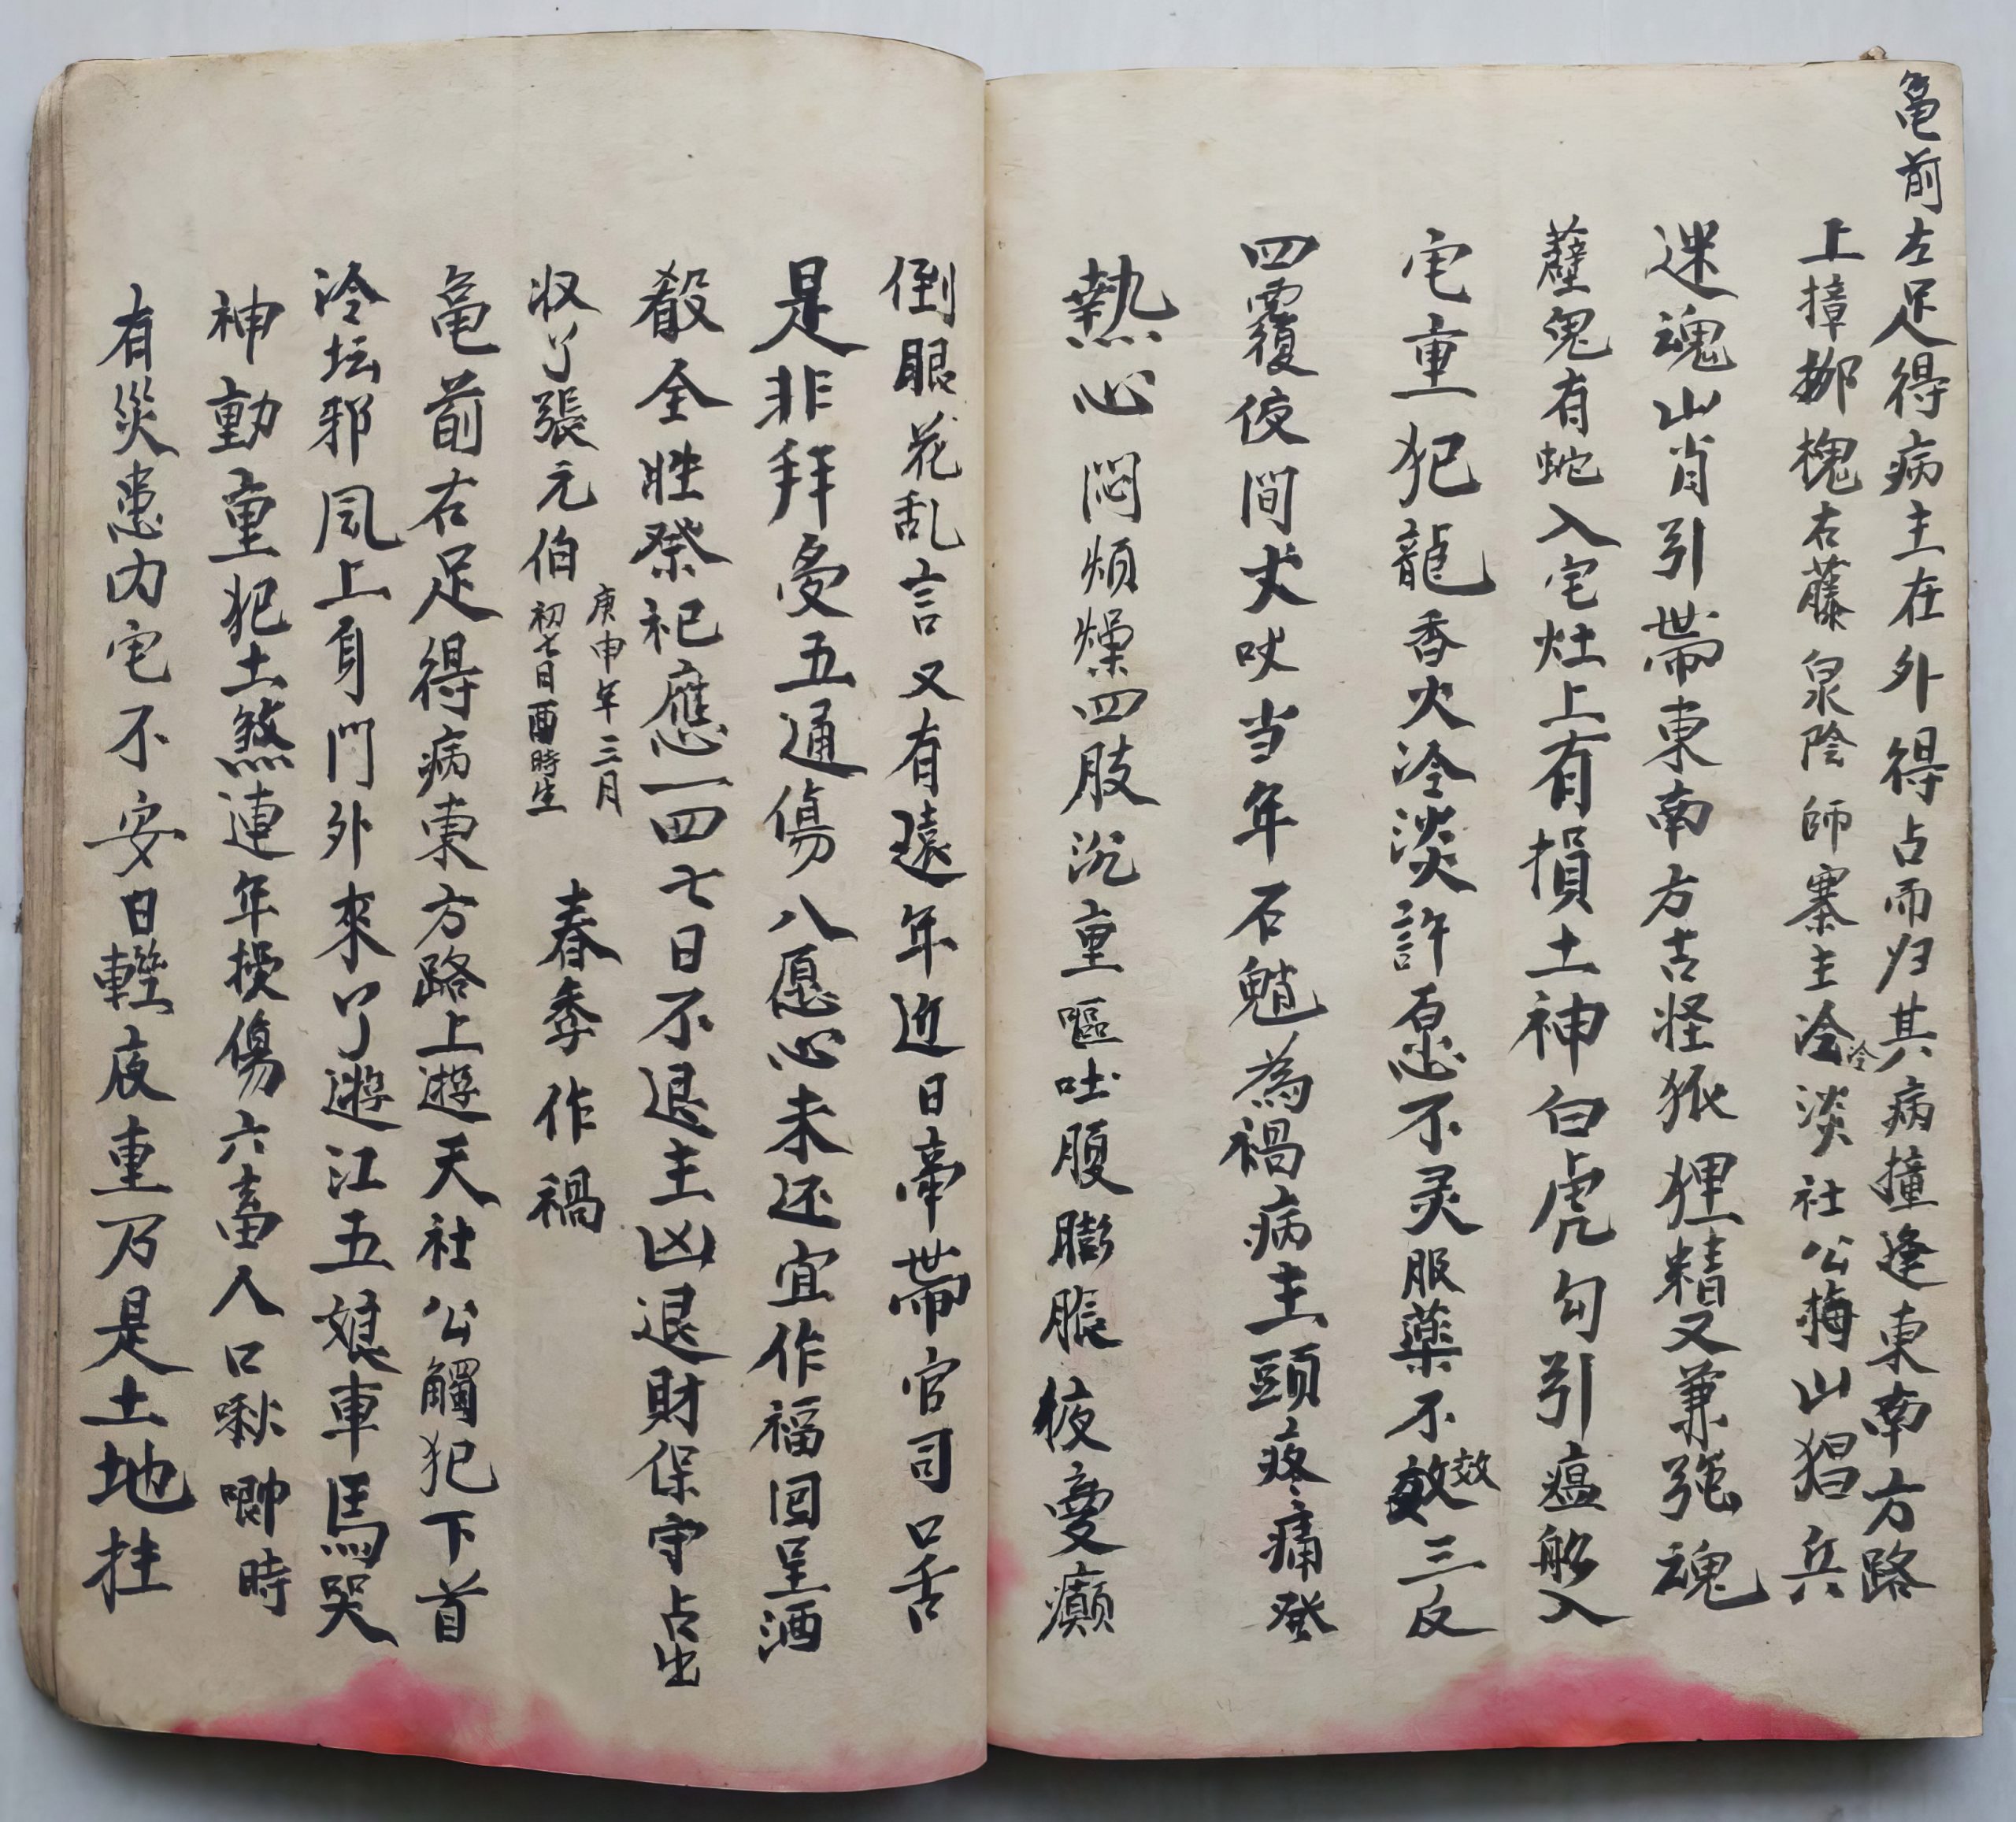 亀前左足得病主在外得占而归其病撞逢東南方路
上撞挷槐右藤泉陰師寨主冷淡社公梅山猖兵
冷
迷魂山肖引帶東南方古怪狐狸精又兼強魂
蘑鬼有蛇入宅灶上有損土神白虎勾引瘟船入
宅重犯龍香火冷淡許愿不灵服藥不效三反
效
四覆夜间丈吠当年石魈為禍病主頭疼痛發
熱心悶煩燥四肢沉重嘔吐腹膨脹夜夢癲
倒眼花乱言又有遠年近日牽帶官司口舌
是非拜受五通傷八愿心未还宜作福回呈酒
殽全牲祭祀應一四七日不退主凶退財保守占出
收了張元伯
庚申年三月
初七日酉時生
春季作禍
亀前右足得病東方路上遊天社公觸犯下首
冷坛邪风上身门外來了遊江五娘車馬哭
神動重犯土煞連年損傷六畜人口啾唧時
有災患内宅不安日輕夜重乃是土地拄